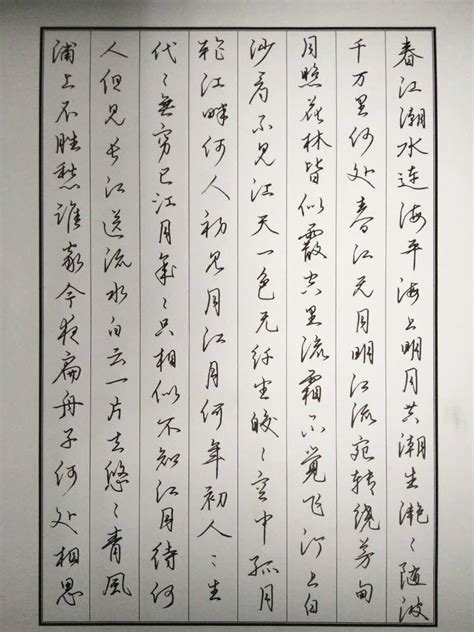 春江潮水连海平海上明月共潮生滟〻随波
千万里何处春江无月明江流宛转绕芳甸
月照花林皆似霰空里流霜不觉飞汀上白
沙看不见江天一色无纤尘皎〻空中孤月
轮江畔何人初见月江月何年初人〻生
代〻無穷已江月年〻只相似不知江月待何
人但见长江送流水白云一片去悠〻青風
浦上不胜愁谁家今夜扁舟子何处相思